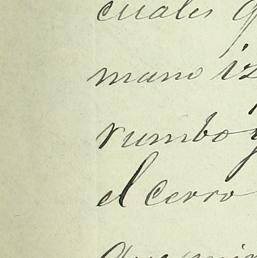 cuales
mano iz
rumbo y
el cerro